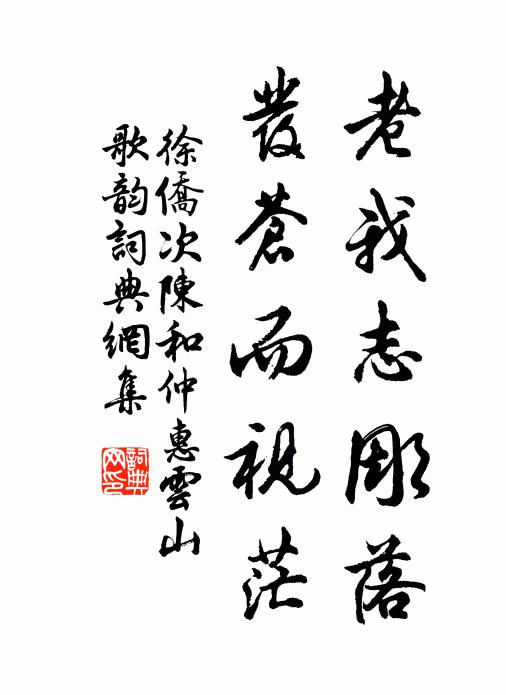 老我志彫落
發蒼而視茫
徐僑次陳和仲惠雲山
歌韵詞典網集
詞典
网印